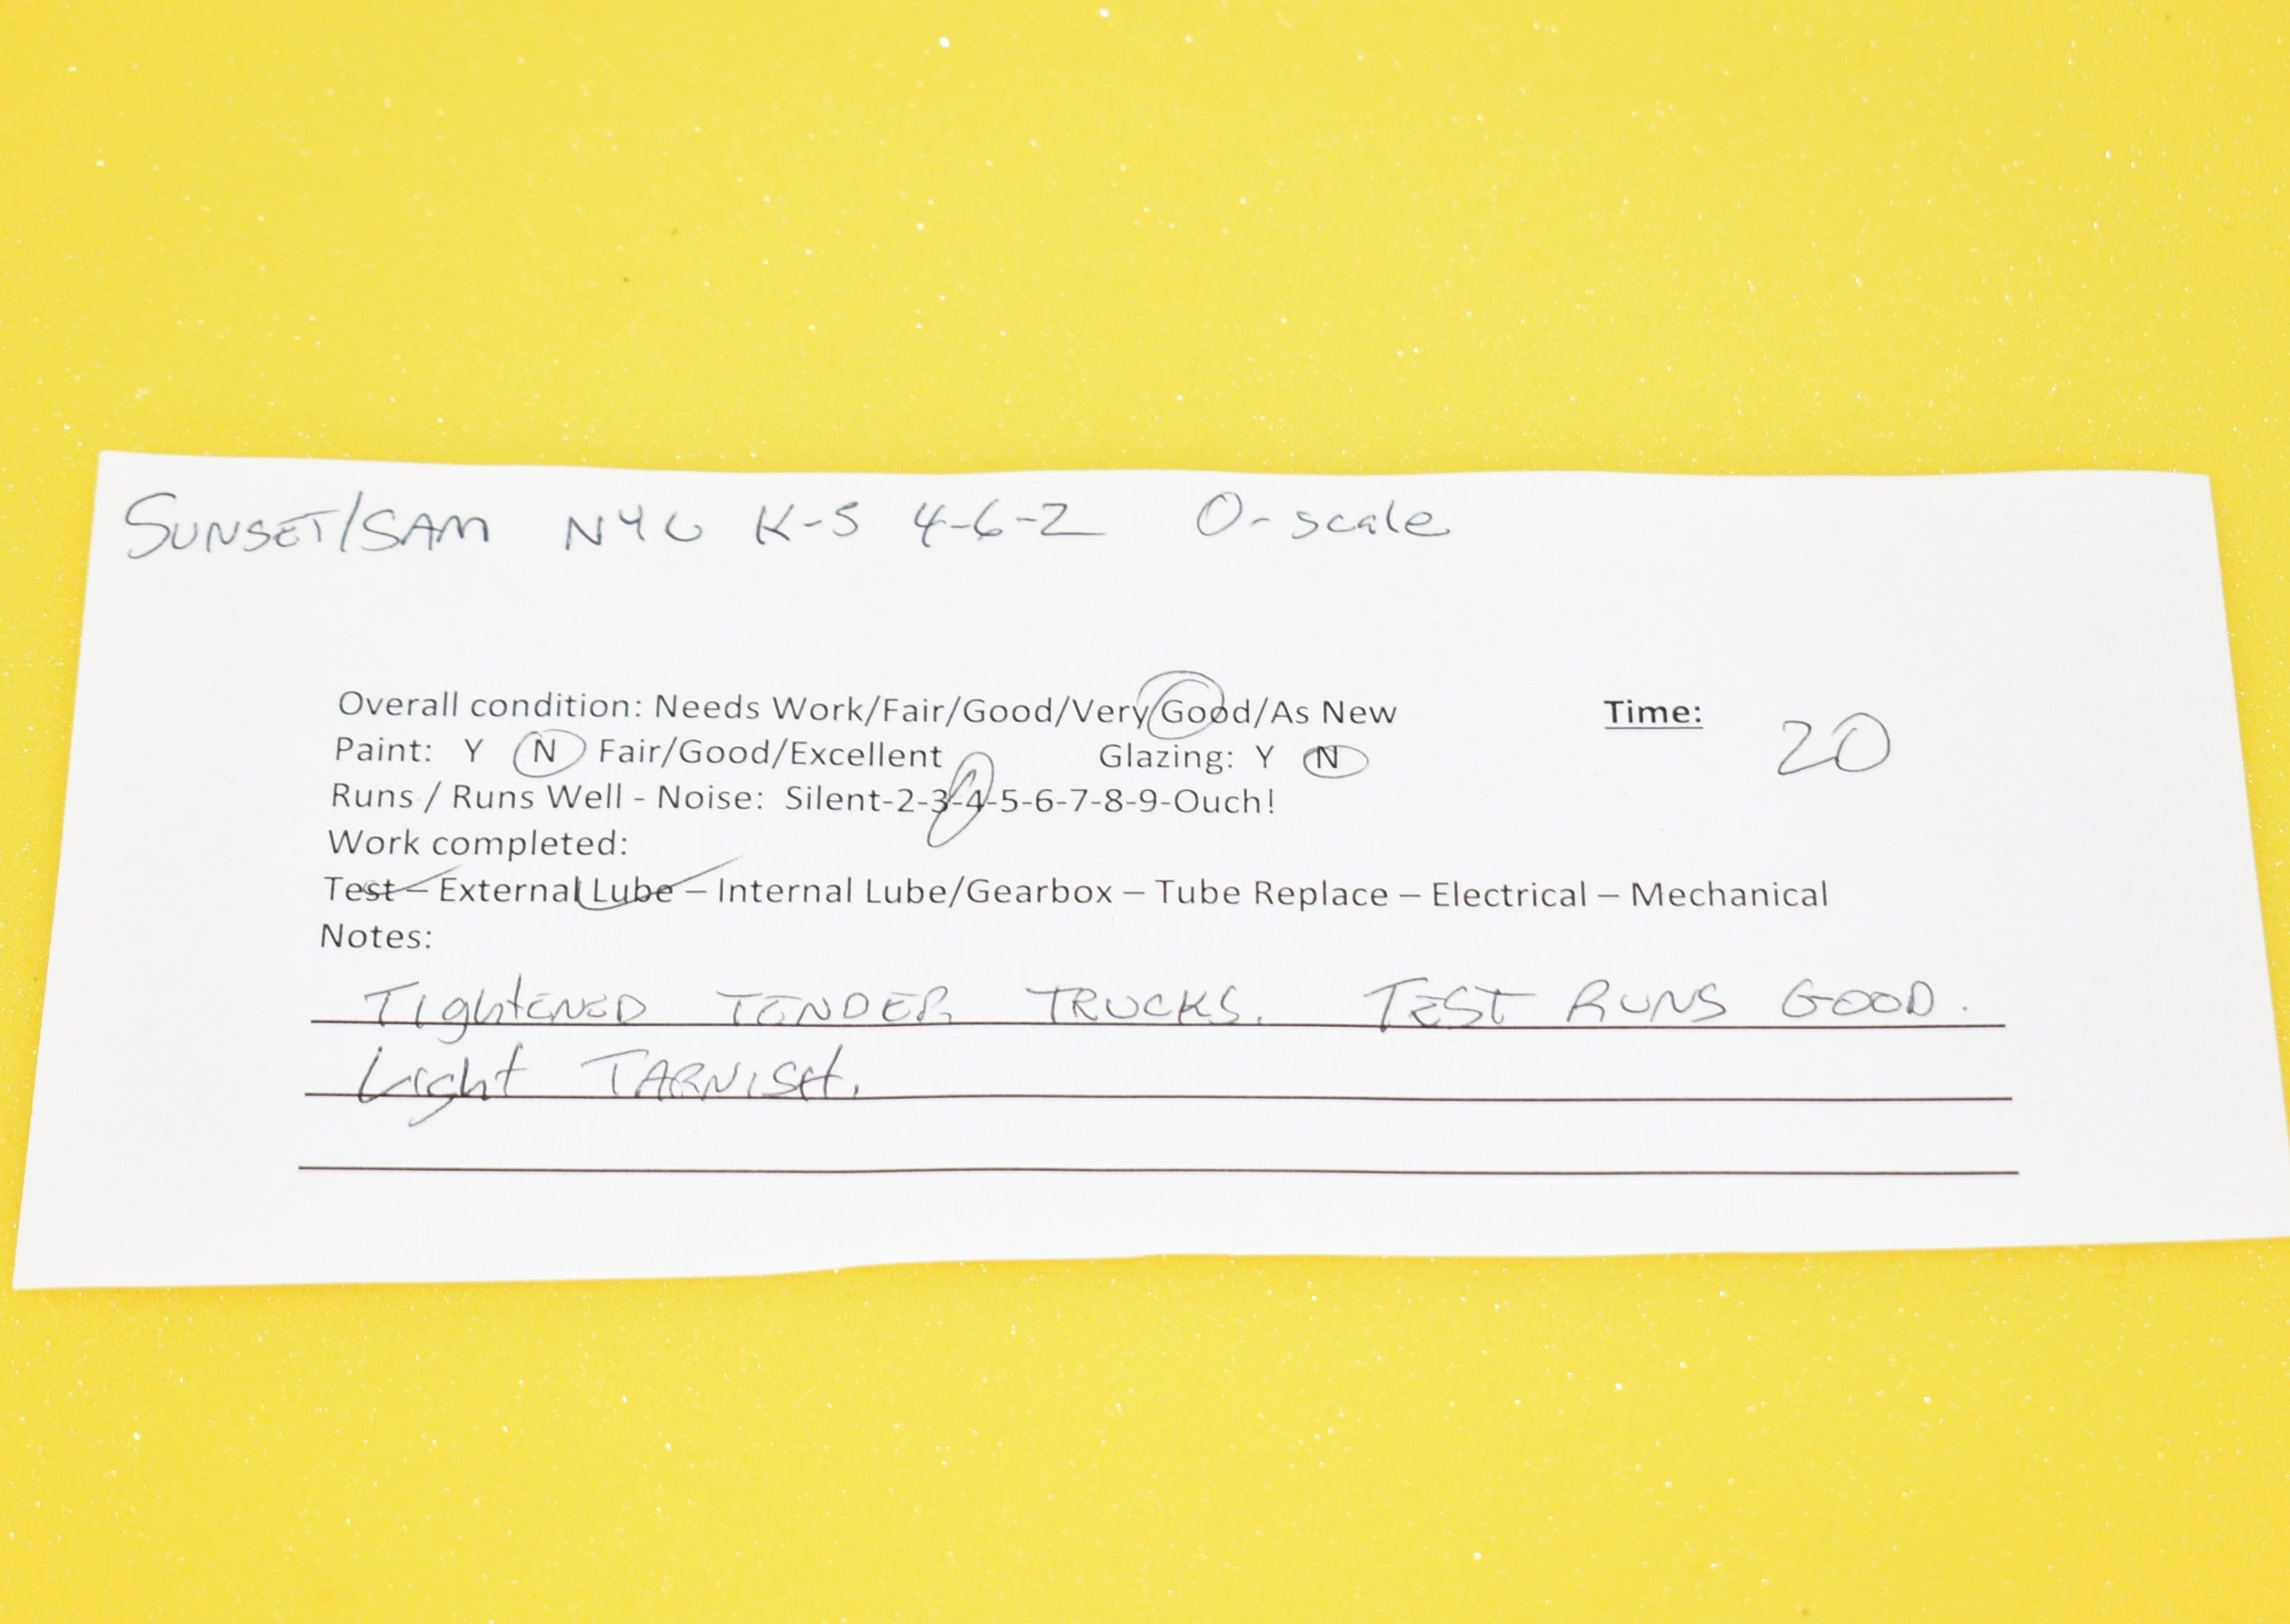 SUNSET/SAM NYC K-5 4-6-2 O-scale
Overall condition: Needs Work/Fair/Good/Very Good/As New Time: 20
Paint: Y N Fair/Good/Excellent Glazing: Y N
Runs / Runs Well - Noise: Silent-2-3-4-5-6-7-8-9-Ouch!
Work completed:
Test – External Lube – Internal Lube/Gearbox – Tube Replace – Electrical – Mechanical
Notes:
TIGHTENED TENDER TRUCKS. TEST RUNS GOOD.
Light TARNISH.